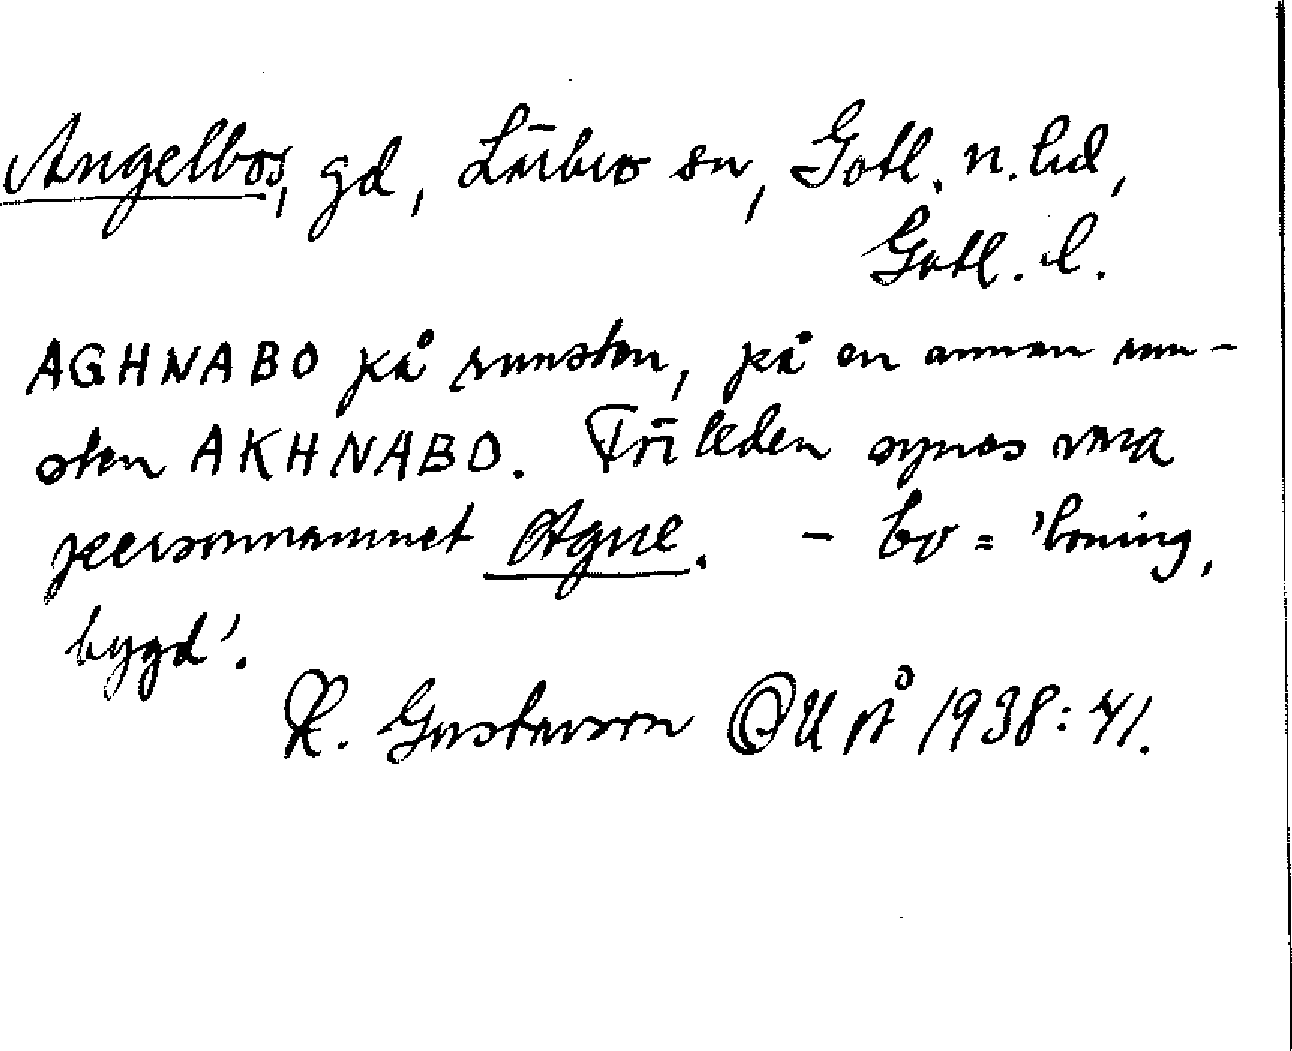 Angelbos, gd, Lärbro sn, Gotl. n. hd,
Gotl. l.
AGHNABO på runsten, på en annan run-
sten AKHNABO. Förleden synes vara
personnamnet Agne. - bo = 'boning,
bygd'.
H. Gustavson OUÅ 1938:41.